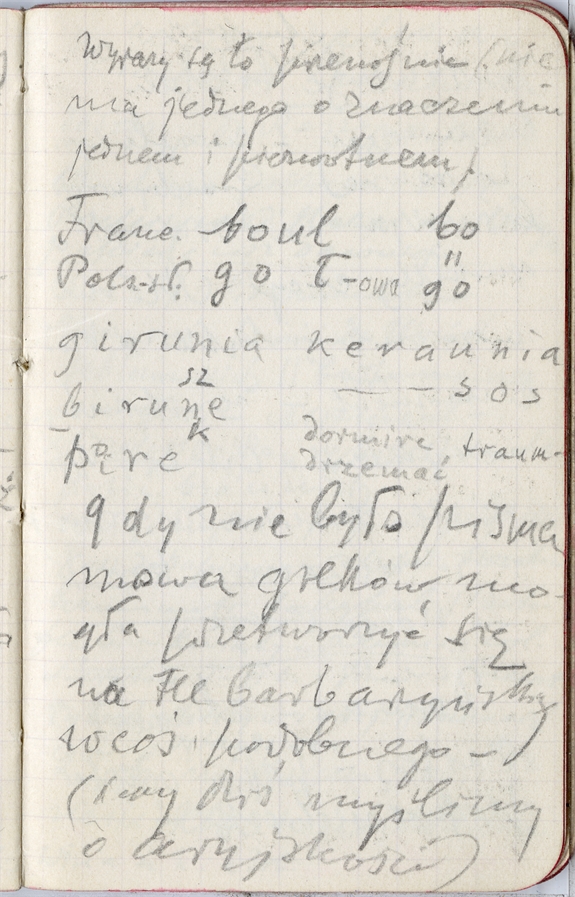 Wyrazy są to przenośnie (nie
ma jednego o znaczeniu
jednem i pierwotnem)
Franc. boul bo
Pols-sł. go ł-owa go
girunia keraunia
birune sz k — — sos
pire dormire, traum-
drzemać
gdy nie było pisma
mowa greków mo-
gła przetworzyć się
na tle barbaryńskiej
w coś podobnego –
(i my dziś myślimy
o aryjskości)